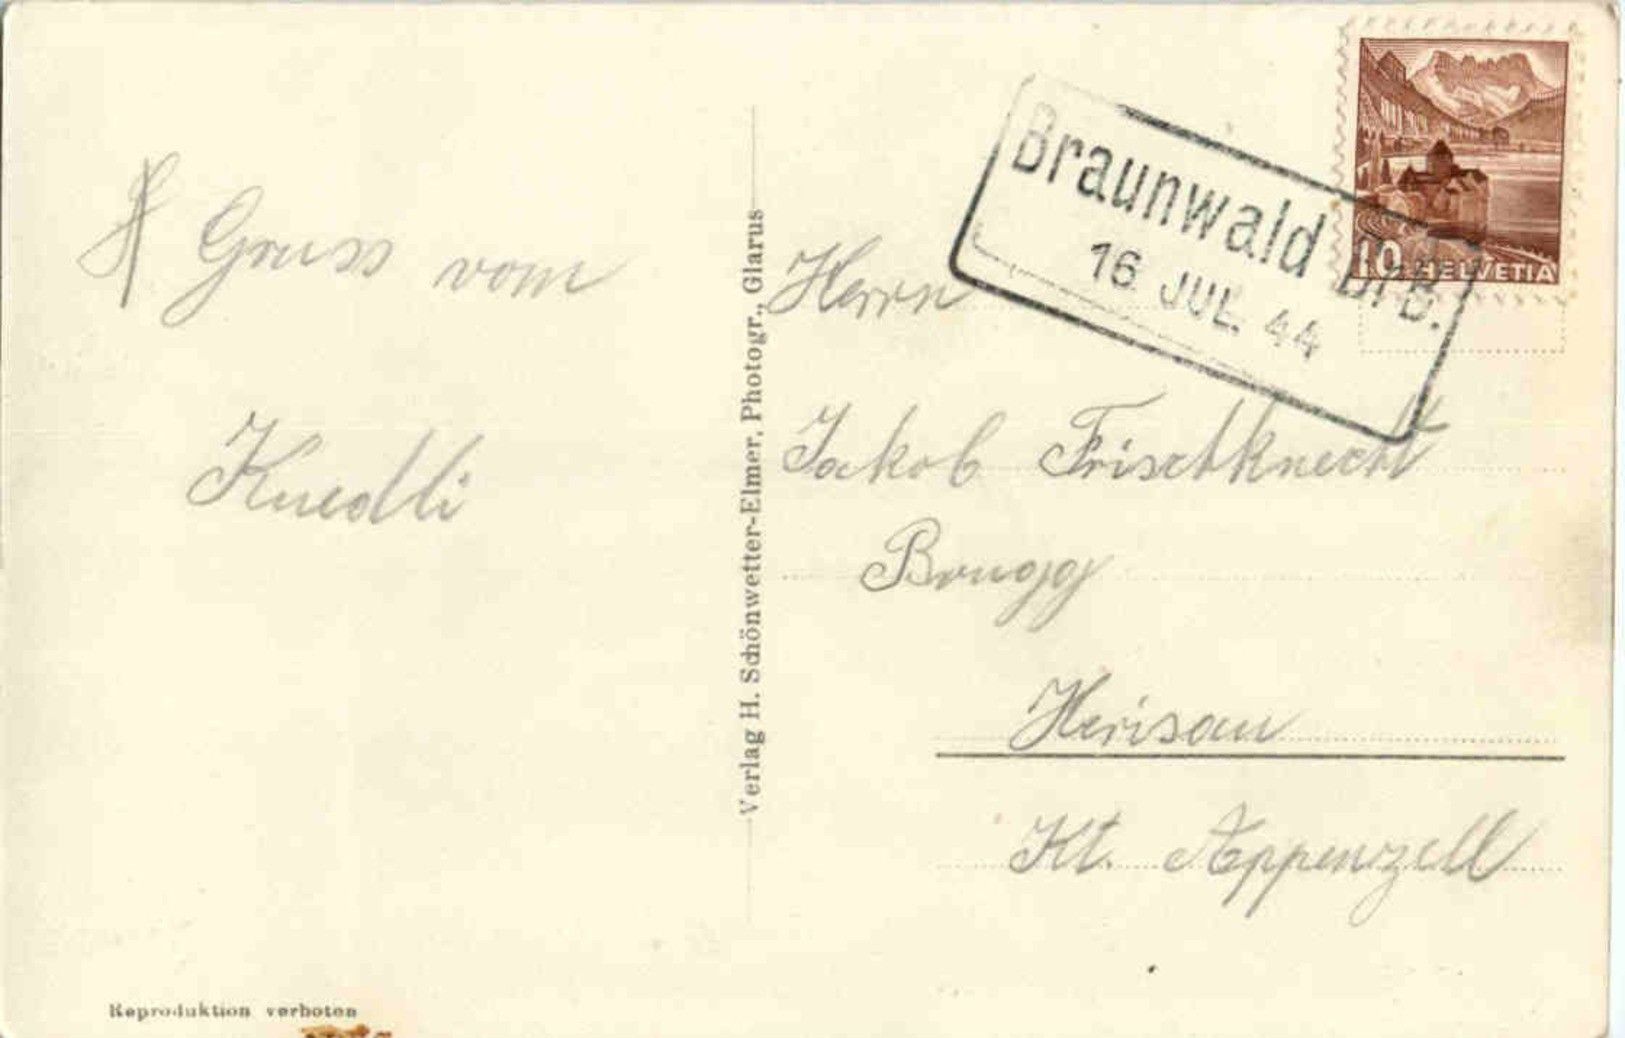 Gruss vom
Knedli
Verlag H. Schönwetter-Elmer, Photogr., Glarus
Reproduktion verboten
Braunwald BrB.
16 JUL. 44
10 HELVETIA
Herrn
Jakob Frischknecht
Brugg
Herisau
Kt. Appenzell